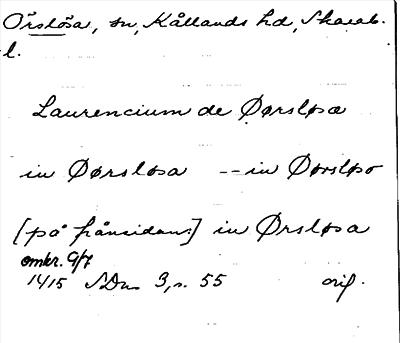 Örslösa, sn, Kållands hd, Skarab.
l.
Laurencium de Ørsløsa
in Ørsløsa -- in Ørsløso
[på frånsidan:] in Ørsløsa
omkr. 9/7
1415 SDns 3, s. 55 orig.